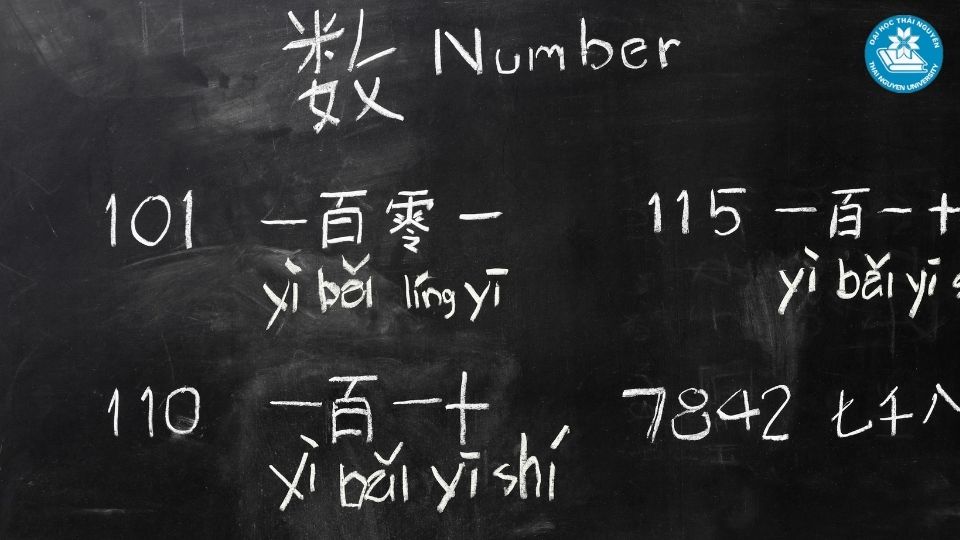 数 Number
ĐẠI HỌC THÁI NGUYÊN
THAI NGUYEN UNIVERSITY
101 一百零一
yì bǎi líng yī
115 一百一十
yì bǎi yī s
110 一百一十
yì bǎi yī shí
7842 七千八